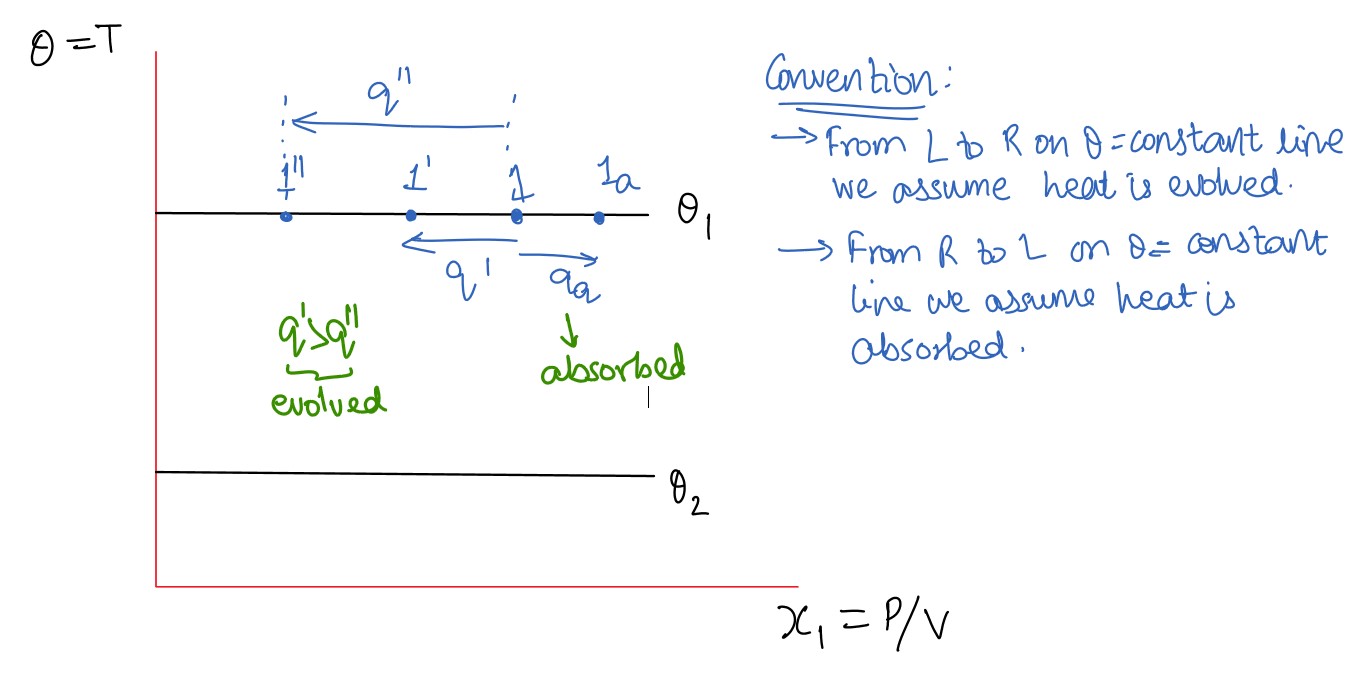 θ = T
q''
1''
1'
1
1a
θ1
q'
qa
q' > q''
evolved
absorbed
θ2
x1 = P/V
Convention:
→ From L to R on θ = constant line
we assume heat is evolved.
→ From R to L on θ = constant
line we assume heat is
absorbed.